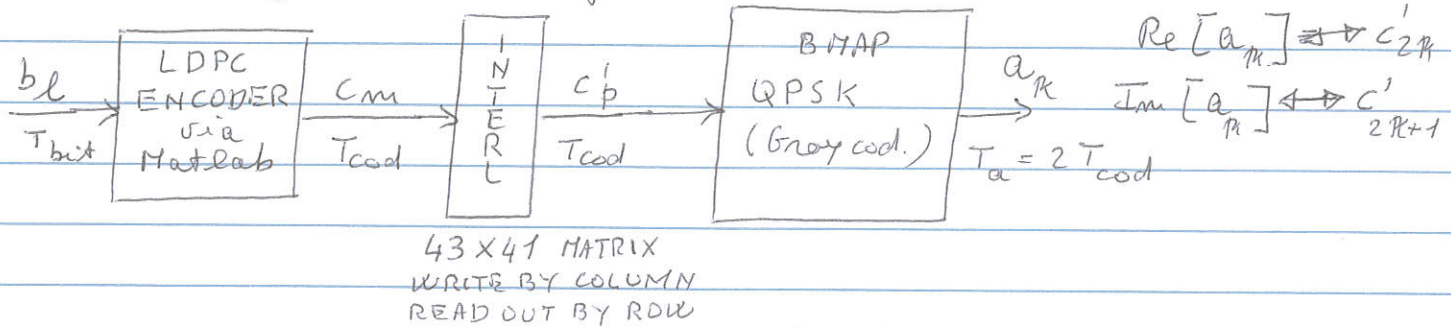 b_l
T_bit
LDPC
ENCODER
via
Matlab
c_m
T_cod
INTERL
c'_p
T_cod
BMAP
QPSK
(Gray cod.)
a_k
T_a = 2 T_cod
Re [a_k] ↔ c'_2k
Im [a_k] ↔ c'_2k+1
43 X 41 MATRIX
WRITE BY COLUMN
READ OUT BY ROW